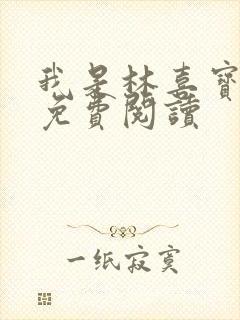 我是林喜寶
免費閱讀
一纸寂寞